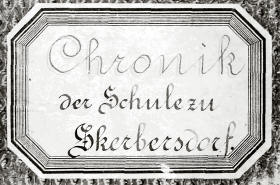 Chronik
der Schule zu
Skerbersdorf.